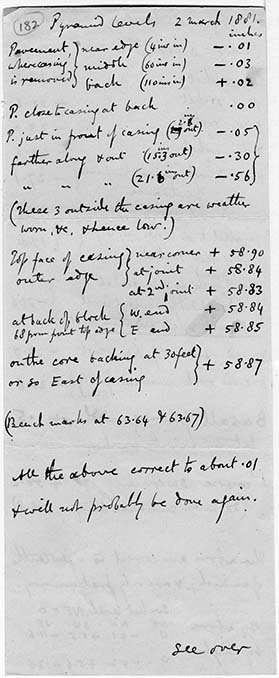 182 Pyramid Levels 2 march 1881.
inches
Pavement near edge (4 ins in) - .01
where casing middle (60 ins in) - .03
is removed back (110 ins in) + .02
P. close to casing at back .00
P. just in front of casing ( out) - .05
farther along & out (15.3 out) - .30
" " " (21. out) - .56
(These 3 outside the casing are weather
worn, &c, & hence low.)
Top face of casing near corner + 58.90
outer edge at joint + 58.84
at 2nd joint + 58.83
at back of block W. end + 58.84
68 from front top edge E end + 58.85
on the core backing at 30 feet
or so East of casing + 58.87
(Bench marks at 63.64 & 63.67)
All the above correct to about .01
& will not probably be done again.
see over